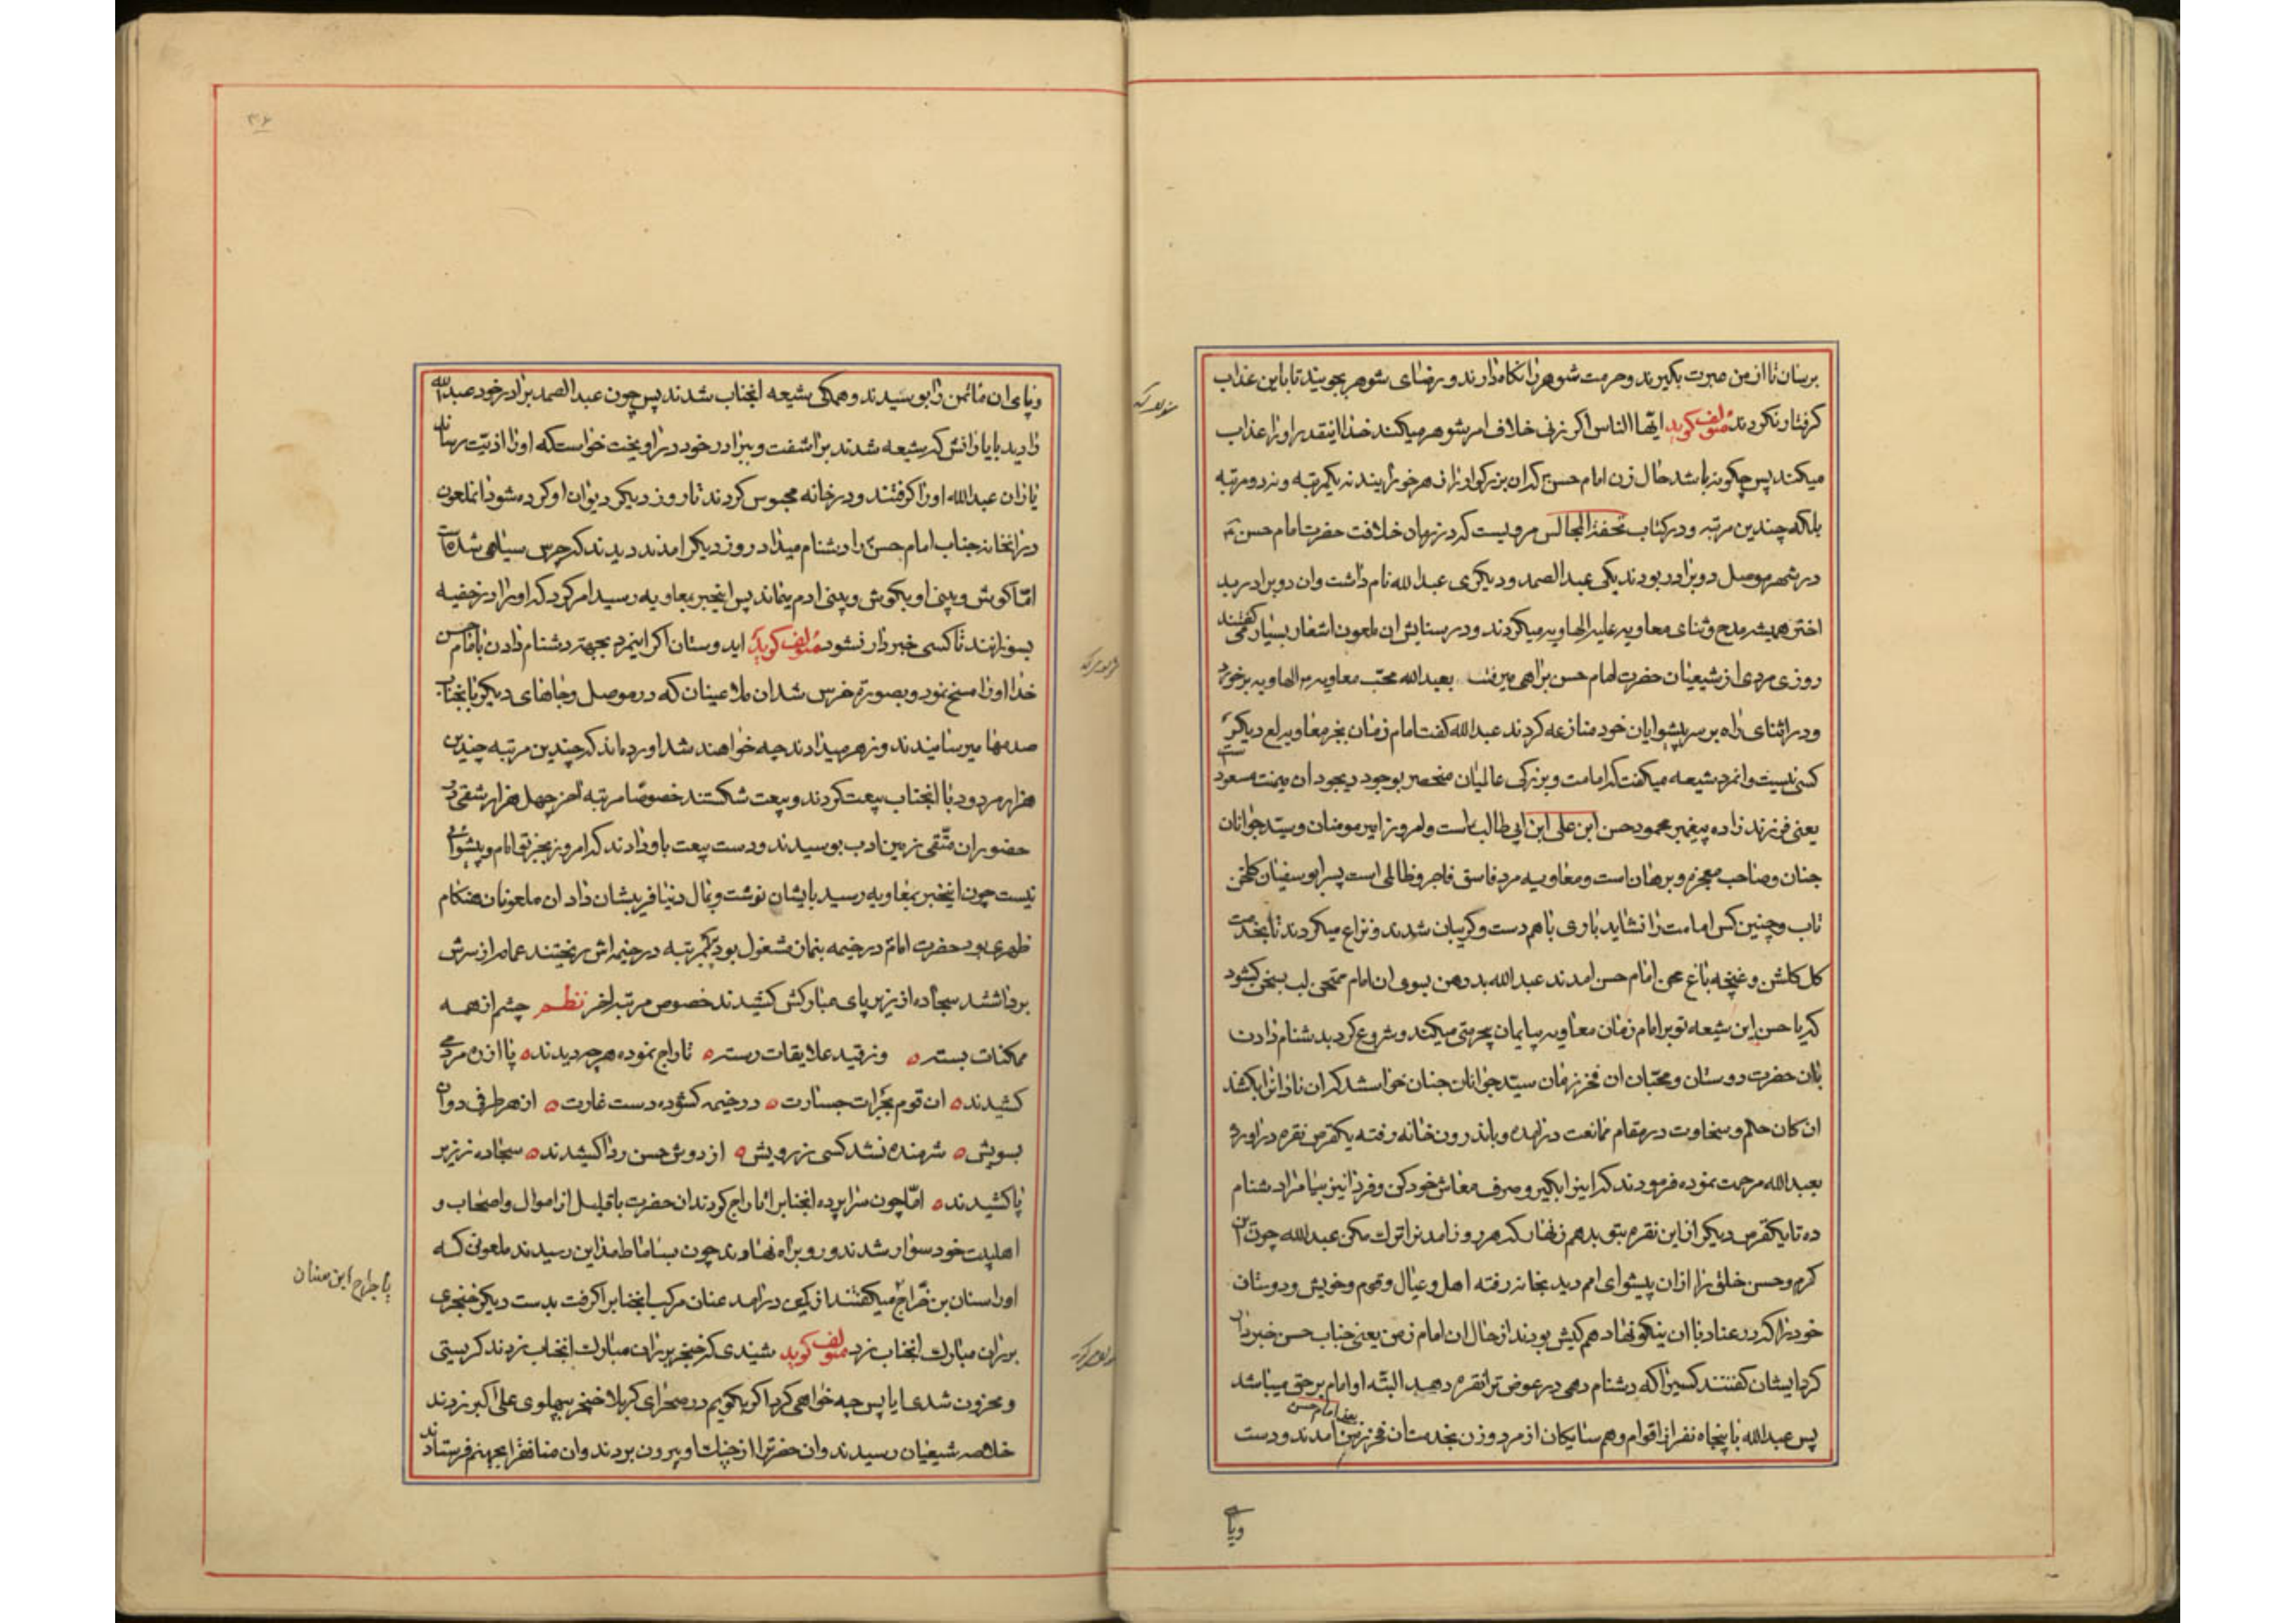 برسان تا از من عبرت بگیرند و حرمت شوهر را نگاه دارند و رضای شوهر بجویند تا باین عذاب
گرفتار نگردند مؤلف گوید ایها الناس اگر زنی خلاف امر شوهر میکند خدا اینقدر او را عذاب
میکند پس چگونه باشد حال زن امام حسن ع که ان بزرگوار را زهر خورانیند نه یکمرتبه و نه دو مرتبه
بلکه چندین مرتبه و در کتاب تحفة المجالس مرویست که در زمان خلافت حضرت امام حسن ع
در شهر موصل دو برادر بودند یکی عبد الصمد و دیگری عبد الله نام داشت وان دو برادر بد
اختر همیشه مدح و ثنای معاویه علیه الهاویه میکردند و در ستایش ان ملعون اشعار بسیار میگفتند
روزی مردی از شیعیان حضرت امام حسن براهی میرفت بعبد الله محب معاویه الهاویه برخورد
و در اثنای راه بر سر پیشوایان خود منازعه کردند عبد الله گفت امام زمان بجز معاویه دیگر
کسی نیست وانمرد شیعه میگفت که امامت و بزرگی عالمیان منحصر بوجود ان میمنت مسعود
یعنی فرزند زاده پیغمبر محمود حسن ابن علی ابن ابی طالب است و امروز امیر مومنان و سید جوانان
جنان و صاحب معجزه و برهان است و معاویه مرد فاسق فاجر و ظالمی است پسر ابو سفیان
تاب و چنین کس امامت را نشاید باری باهم دست و گریبان شدند و نزاع میکردند تا بخدمت
گل گلشن و غنچه باغ امام حسن امدند عبد الله بد دهن بسوی ان امام ممتحن لب بسخن گشود
که یا حسن این شیعه تو بر امام زمان معاویه بیحرمتی میکند و شروع کرد بدشنام دادن
بان حضرت دوستان و محبان ان فخر زمان سید جوانان جنان خواستند که ان نادان را بکشند
ان کان حلم و سخاوت در مقام ممانعت درامده و باندرون خانه رفته یکقرص نقره دراورد
بعبد الله مرحمت نموده فرمودند که این را بگیر و صرف معاش خود کن و فردا نیز بیا مرا دشنام
ده تا یکقرص دیگر از این نقره بتو بدهم زنهار که هر روز امدن را ترک مکن عبد الله چون این
کرم و حسن خلق را از ان پیشوای امم دید بخانه رفته اهل و عیال و قوم و خویش و دوستان
خود را که در عناد با ان نیکو نهاد هم کیش بودند از حال ان امام زمن یعنی جناب حسن خبر داد
که ایشان گفتند کسیرا که دشنام دهی در عوض ترا نقره دهد البته او امام بر حق میباشد
یعنی امام حسن
پس عبد الله با پنجاه نفر از اقوام و همسایگان از مرد و زن بخدمت ان فخر زمین امدند و دست
وپای
وپای ان مائمن را بوسیدند و همگی شیعه انجناب شدند پس چون عبد الصمد برادر خود عبد الله
را دید با یارانش که شیعه شدند براشفت و ببرادر خود دراویخت خواست که او را اذیت رساند
یاران عبد الله او را گرفتند و در خانه محبوس کردند تا روز دیگر دیوان او کرده شود انملعون
در انخانه جناب امام حسن را دشنام میداد روز دیگر امدند دیدند که خرس سیاهی شده است
اما گوش و بینی او بگوش و بینی ادم میماند پس اینخبر بمعاویه رسید امر کرد که او را در خفیه
بسوزانند تا کسی خبردار نشود مؤلف گوید ایدوستان اگر اینمرد بجهة دشنام دادن بامام حسن
خدا او را مسخ نمود و بصورت خرس شد ان ملاعینان که در موصل و جاهای دیگر بانجناب
صدمها میرسانیدند و زهر میدادند چه خواهند شد اورده اند که چندین مرتبه چندین
هزار مردود با انجناب بیعت کردند و بیعت شکستند خصوصا مرتبه اخر چهل هزار شقی در
حضور ان متقی زمین ادب بوسیدند و دست بیعت باو دادند که امروز بجز تو امام و پیشوائی
نیست چون اینخبر بمعاویه رسید بایشان نوشت و بمال دنیا فریبشان داد ان ملعونان هنگام
ظهری بود حضرت امام در خیمه بنماز مشغول بود یکمرتبه در خیمه اش ریختند عمامه از سرش
برداشتند سجاده از زیر پای مبارکش کشیدند خصوص مرتبه اخر نظم چشم از همه
ممکنات بسته ه وز قید علایقات رسته ه تاراج نموده هر چه دیدند ه پا از ره مردمی
کشیدند ه ان قوم بجرات جسارت ه در خیمه گشوده دست غارت ه از هر طرفی دوان
بسویش ه شرمنده نشد کسی ز رویش ه از دوش حسن ردا کشیدند ه سجاده ز زیر
پا کشیدند ه اما چون سراپرده انجناب را تاراج کردند ان حضرت با قلیل از اموال و اصحاب و
اهلبیت خود سوار شدند و رو براه نهادند چون بساباط مداین رسیدند ملعونی که
او را سنان بن جراح میگفتند از کمین درامد عنان مرکب انجناب را گرفت بدست دیگر خنجری
بران مبارک انجناب زد مؤلف گوید شنیدی که خنجر بران مبارک انجناب زدند گریستی
و محزون شدی ایا پس چه خواهی کرد اگر بگویم در صحرای کربلا خنجر بپهلوی علی اکبر زدند
خلاصه شیعیان رسیدند وان حضرترا از چنک او بیرون بردند وان منافق را بجهنم فرستادند
یا جراح ابن سنان